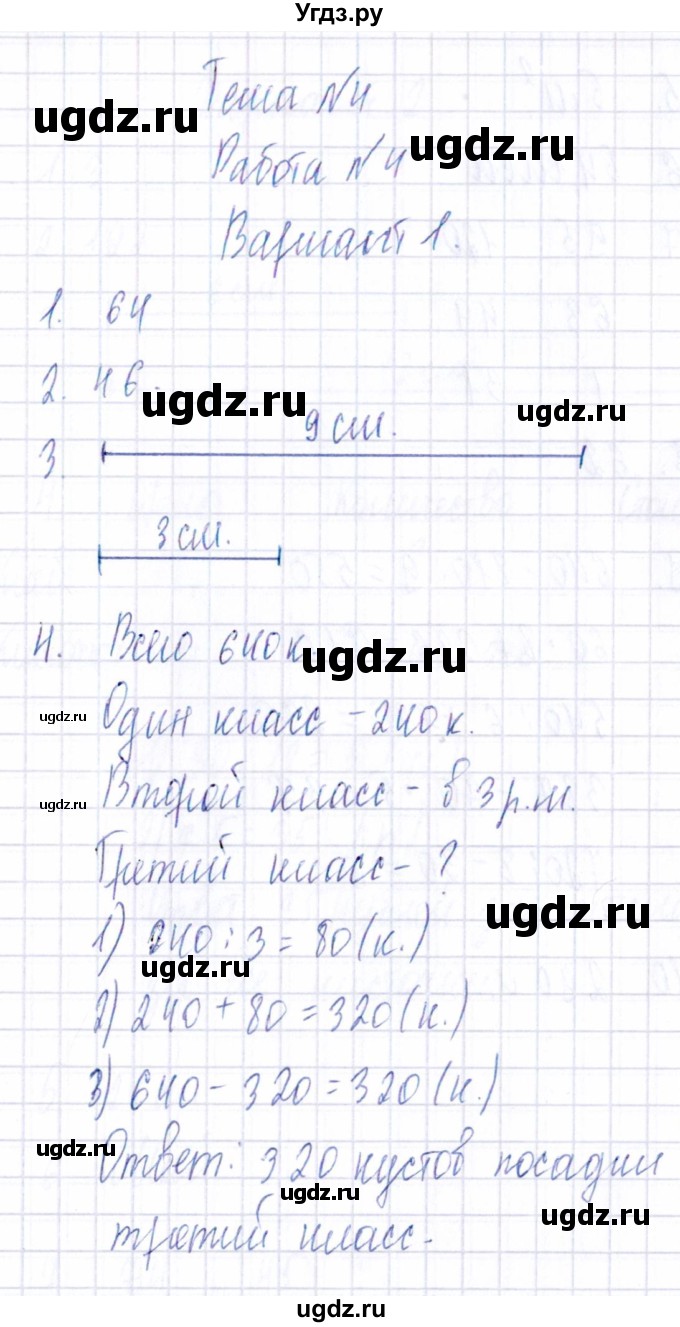 Угдз.ру
Тема №4
ugdz.ru
ugdz.ru
Работа №4
Вариант 1.
1. 64
2. 46.
ugdz.ru
ugdz.ru
9 см.
3.
3 см.
4. Всего 640 к.
ugdz.ru
ugdz.ru
Один класс - 240 к.
ugdz.ru
Второй класс - в 3 р.м.
Третий класс - ?
ugdz.ru
1) 240 : 3 = 80 (к.)
ugdz.ru
2) 240 + 80 = 320 (к.)
3) 640 - 320 = 320 (к.)
ugdz.ru
Ответ: 320 кустов посадил
ugdz.ru
ugdz.ru
третий класс.
ugdz.ru